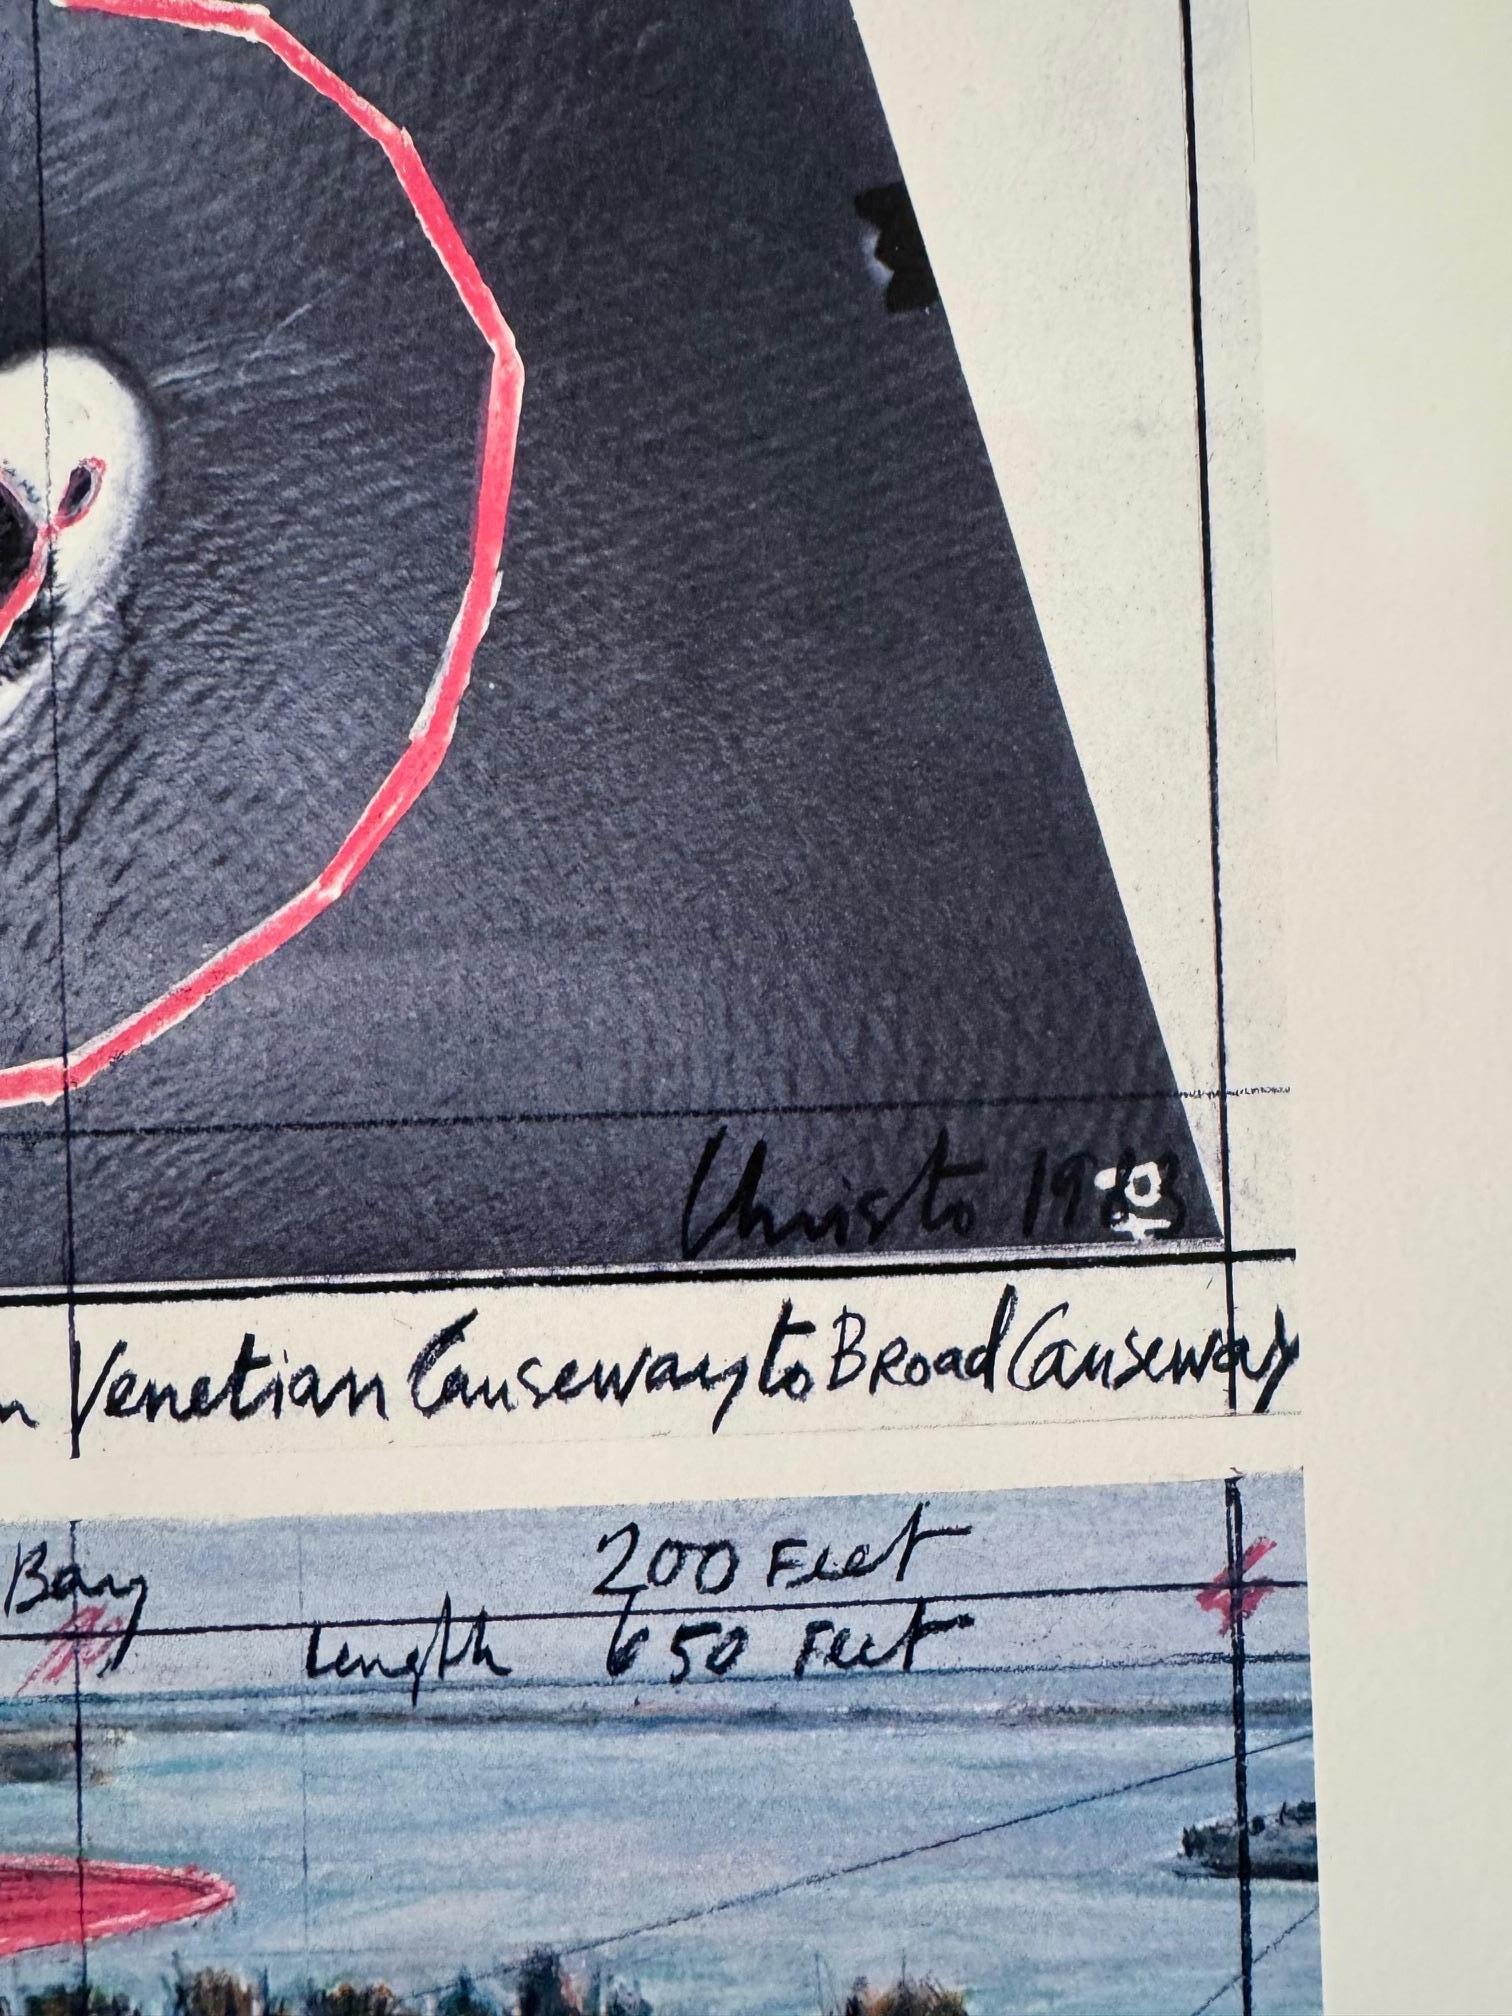 Christo 1983
Venetian Causeway to Broad Causeway
Bay
200 Feet
Length 650 Feet